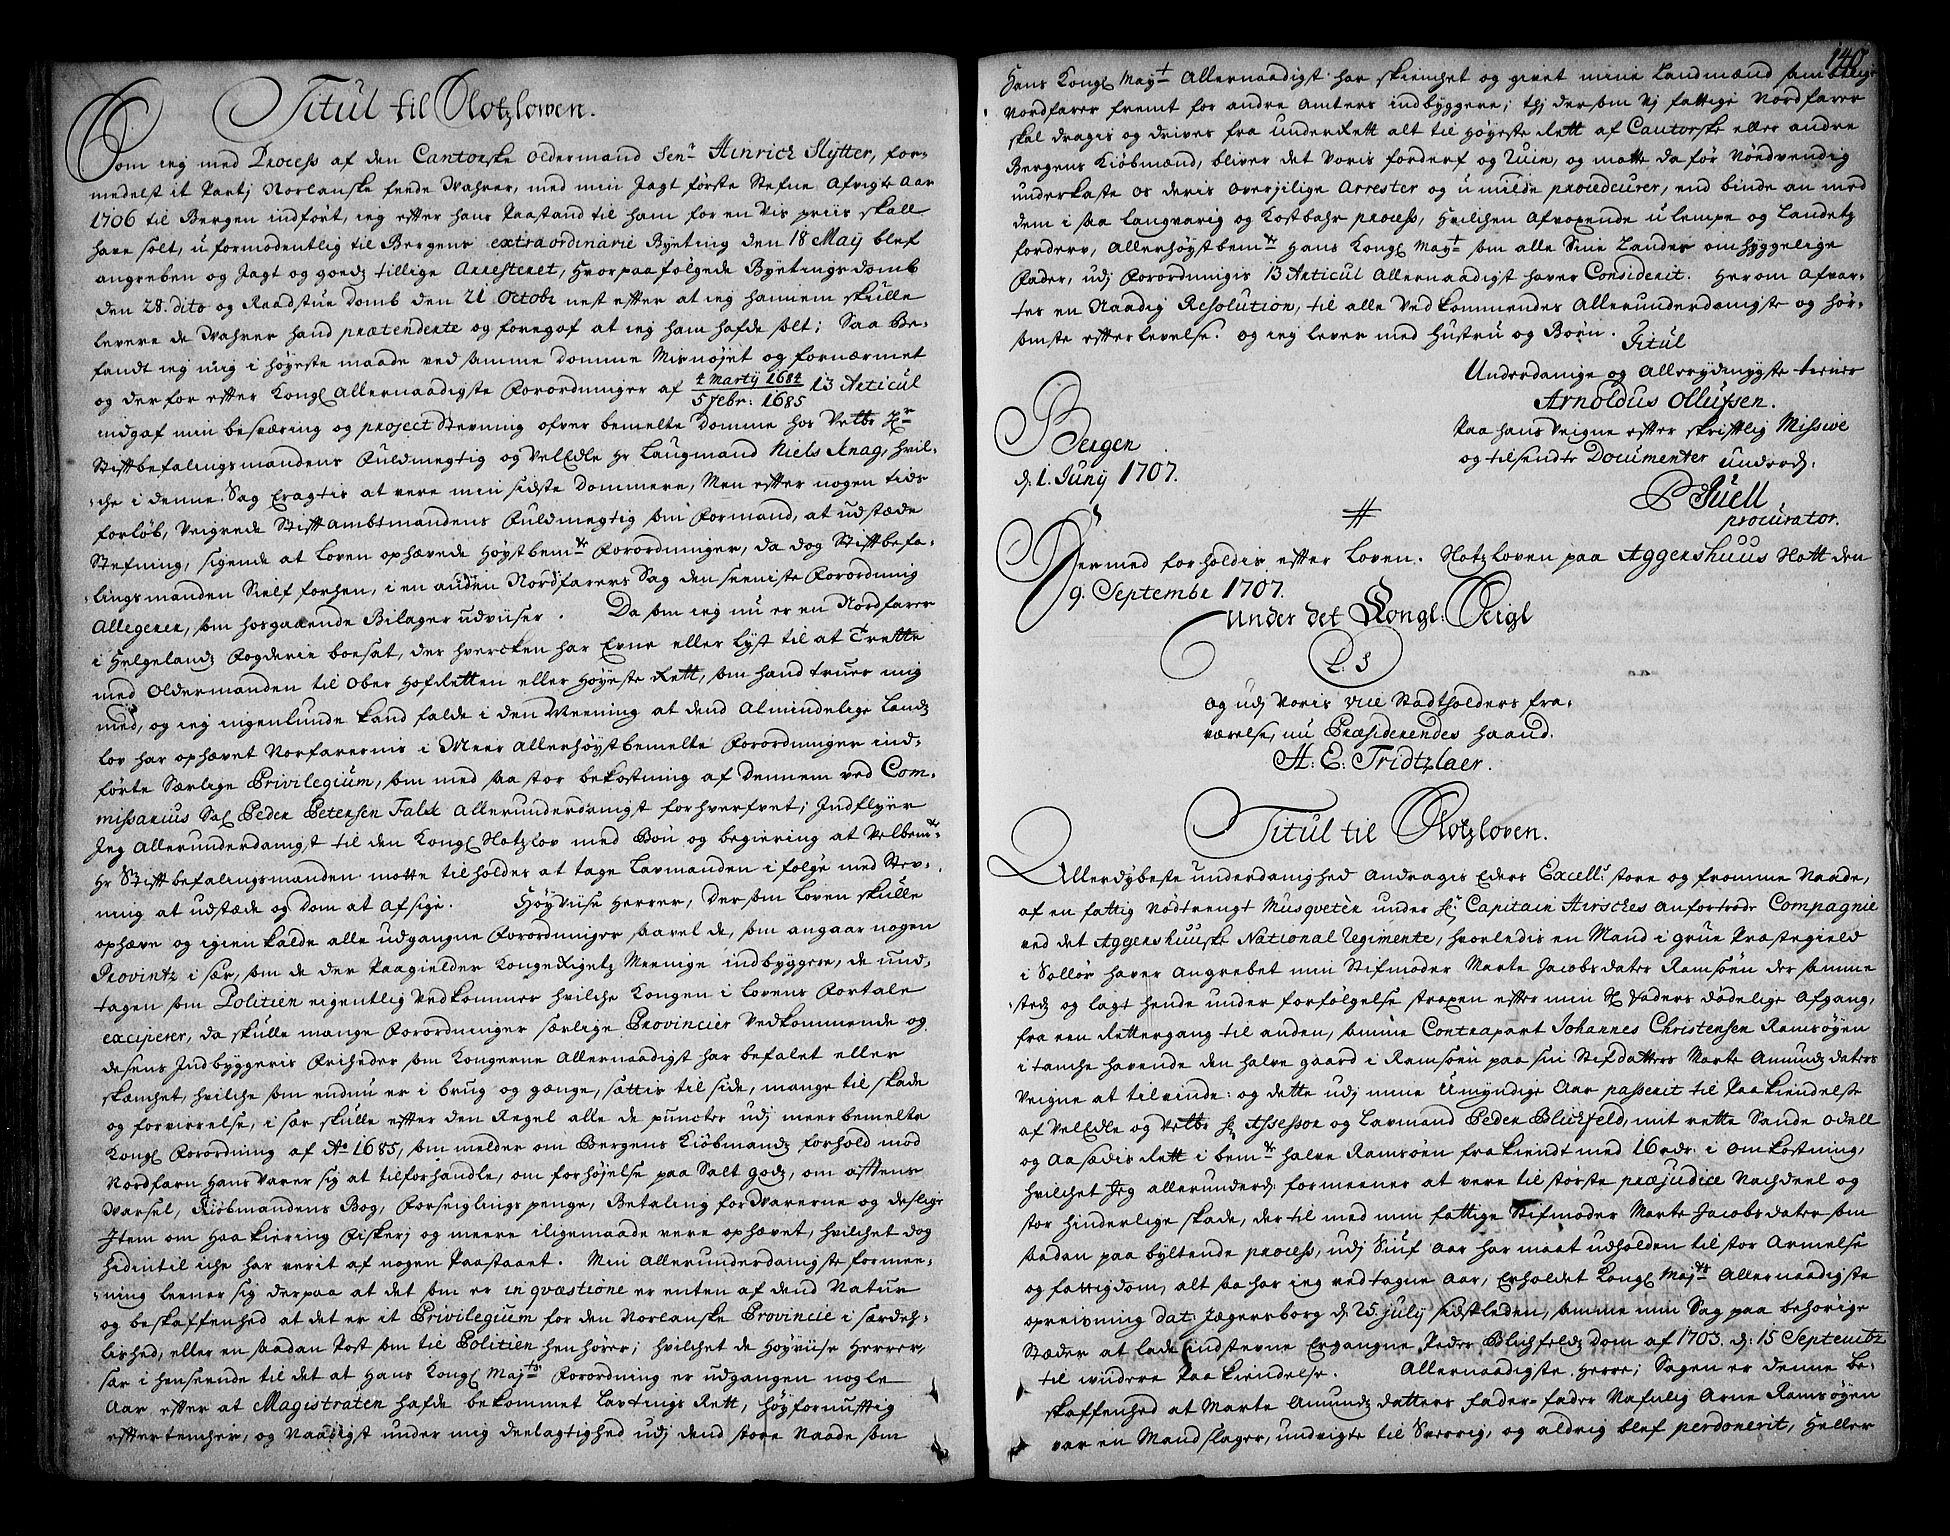 Titul til Slotzlowen.
Som ieg med Process af den Cantorske Oldermand Senr Hinrich Slÿtter, for-
medelst it Partj Norlanske sende Wahrer, med min Jagt förste Stefne Afvigte Aar
1706 til Bergen indfört, ieg efter hans Paastand til ham for en Vis priis skall
have solt, uformodentlig til Bergens extraordinarie Byeting den 18 Maÿ blef
angreben og Jagt og goedz tillige Arresteret, Hvorpaa fölgede Byetings domb
den 28. dito og Raadstue Domb den 21 Octobr nest efter at ieg hannem skulle
levere de Wahrer hand prætenderte og foregaf at ieg ham hafde solt; Saa Be-
fandt ieg mig i höyeste maade ved samme Domme Misnöjet og fornærmet
og der for efter Kongl Allernaadigste Forordninger af 4 Martÿ 1684 / 5 Febr: 1685 13 Articul
indgaf min besværing og project Stevning ofver bemelte Domme hos Velbr Hr
Stiftbefalingsmandens Fuldmegtig og VelEdle Hr Laugmand Niels Knag, hvil-
che i denne Sag Eragtis at vere min sidste Dommere, Men efter nogen tids
forlöb, Veigrede Stiftambtmandens Fuldmegtig som Formand, at udstæde
Stefning, sigende at Loven ophævede Höystbemte Forordninger, da dog Stiftbefa-
lingsmanden Sielf forhen, i en anden Nordfarers Sag den seeniste Forordning
Allegerer, som hosgaaende Bilager udviiser. Da som ieg nu er en Nordfarer
i Helgelandz Fogderie boesat, der hvercken har Evne eller Lyst til at Trette
med Oldermanden til Ober Hof Retten eller Höyeste Rett, som hand truer mig
med, og ieg ingenlunde kand falde i den Meening at dend Almindelige Landz
Lov har ophævet Norfarernis i Meer Allerhöystbemelte Forordninger ind-
förte Særlige Privilegium, som med saa stor bekostning af Dennem ved Com-
missarius Sal Peder Petersen Falch Allerunderdanigst forhverfvet; Indflyer
Jeg Allerunderdanigst til den Kongl Slotzlov med Bön og begiering at Velbemte
Hr Stiftbefalingsmanden motte tilholdes at tage Lavmanden i fölge med Stev-
ning at udstæde og Dom at afsige. Höÿviise Herrer, Dersom Loven skulle
ophæve og igien kalde alle udgangne Forordninger saavel de, som angaar nogen
Provintz i sær, som de der Paagielder Kongerigetz Meenige indbyggere, de und-
tagen som Politien eigentlig Vedkommer hvilche Kongen i Lovens Fortale
exciperer, da skulle mange Forordninger særlige Provincier Vedkommende og
desens Indbyggeris Friheder som Kongerne Allernaadigst har befalet eller
skæncket, hvilche som endnu er i brug og gænge, sættis til side, mange til skade
og forvirrelse, i sær skulle efter den Regel alle de puncter udj meerbemelte
Kongl Forordning af Ao 1685, som melder om Bergens Kiöbmandz forhold mod
Nordfarn Hans Varer sig at tilforhandle, om forhöjelse paa Salt godz, om aftens
Warsel, Kiöbmandens Bog, Forseiglings penge, Betaling for Warerne og deslige
Item om Haakiering Fiskerj og meere iligemaade vere ophævet, hvilchet dog
hidintil iche har verit af nogen Paastaaet. Min Allerunderdanigste formee-
ning leener sig derpaa at det som er in qvæstione er enten af dend Natur
og beskaffenhed at det er it Privilegium for den Norlanske Provincie i særdeh-
lished, eller en saadan Post som til Politien henhörer; hvilchet de Höÿviise Herrer,
sær i henseende til det at Hans Kongl Majts Forordning er udgangen nogle
Aar efter at Magistraten hafde bekommet Lavtings Rett, Höyfornuftig
eftertencher, og Naadigst under mig deelagtighed udj dend store Naade som
140
Hans Kongl Mayt Allernaadigst har skienchet og givet mine Landmænd samtlige
Nordfarer fremt for andre Amters indbyggere; thj dersom Vj fattige Nordfarer
skal dragis og drives fra underRett alt til Höyeste Rett af Cantorske eller andre
Bergens Kiöbmænd, bliver det Voris forderf og Ruin, og motte da för Nödvendig
underkaste os deris overjilige Arrester og umilde procedeurer, end binde an med
dem i saa Langvarig og Kostbahr process, Hvilchen Afvoxende ulempe og Landetz
forderv, Allerhöystbemte Hans Kongl Mayt som alle Sine Landes omhyggelige
Fader, udj Forordningis 13 Articul Allernaadigst haver Considerit. Herom afvar-
tes en Naadig Resolution, til alle Vedkommendes Allerunderdanigste og hör-
somste efterlevelse. og ieg lever med Hustru og Börn.
Titul
Underdanige og Allerydmygste tiener
Arnoldus Ollufsen.
Paa hans Veigne efter skriftlig Missive
og tilsendte Documenter underd:
P Juell
procurator.
Bergen
d: 1. Junÿ 1707.
#
Hermed forholdis efter Loven. Slotzloven paa Aggershuus Slott den
9. Septembr 1707.
Under det Kongl. Seigl
L: S
og udj Voris Vice Stadtholders fra-
værelse, nu Præsiderendes haand.
H: E: Tridtzlaer.
Titul til Slotzloven.
Allerdybeste underdanighed Andragis Eders Excells store og fromme Naade,
af en fattig Nödtrengt Musqveter under Hr Capitain Hirsches anfortrode Compagnie
ved det Aggershuuske National Regimente, hvorledis en Mand i Grue Præstegield
i Sollör haver angrebet min Stifmoder Marte Jacobsdater Ramsöen der samme
stedz og lagt hende under forfölgelse straxen efter min Sl Faders dödelige Afgang,
fra een Rettergang til anden, samme Contrapart Johannes Christensen Ramsöyen
i tanche havende den halve gaard i Ramsöen paa sin Stifdatters Marte Amundz daters
Veigne at tilvinde: og dette udj mine Umyndige Aar passerit til Paakiendelse
af VelEdle og Velbr Hr Assessor og Lavmand Peder Blichfeld, mit rette Sande Odell
og Aasædis Rett i bemte halve Ramsöen frakiendt med 16 rdr: i omkostning,
hvilchet Jeg allerunderd: formeener at vere til störste præjudice Nachdeel og
stor hinderlige skade, der til med min fattige Stifmoder Marte Jacobsdater som
saadan paa byltende process, udj Siuf Aar har maat udholden til stor Armelse
og fattigdom, alt saa har ieg ved tagne Aar, Erholdet Kongl Majts Allernaadigste
opreisning dat: Jægersborg d: 25 July sidstleden, samme min Sag paa behörige
Stæder at lade indstevne Ergangne Peder Blichfeldz Dom af 1703. d: 15 Septembr
til videre Paakiendelse. Allernaadigste Herre; Sagen er denne be-
skaffenhed at Marte Amundz datters fader-fader Nafnlig Arne Ramsöyen
var en Mandslager, undvigte til Sverrig, og aldrig blef perdonerit, Heller